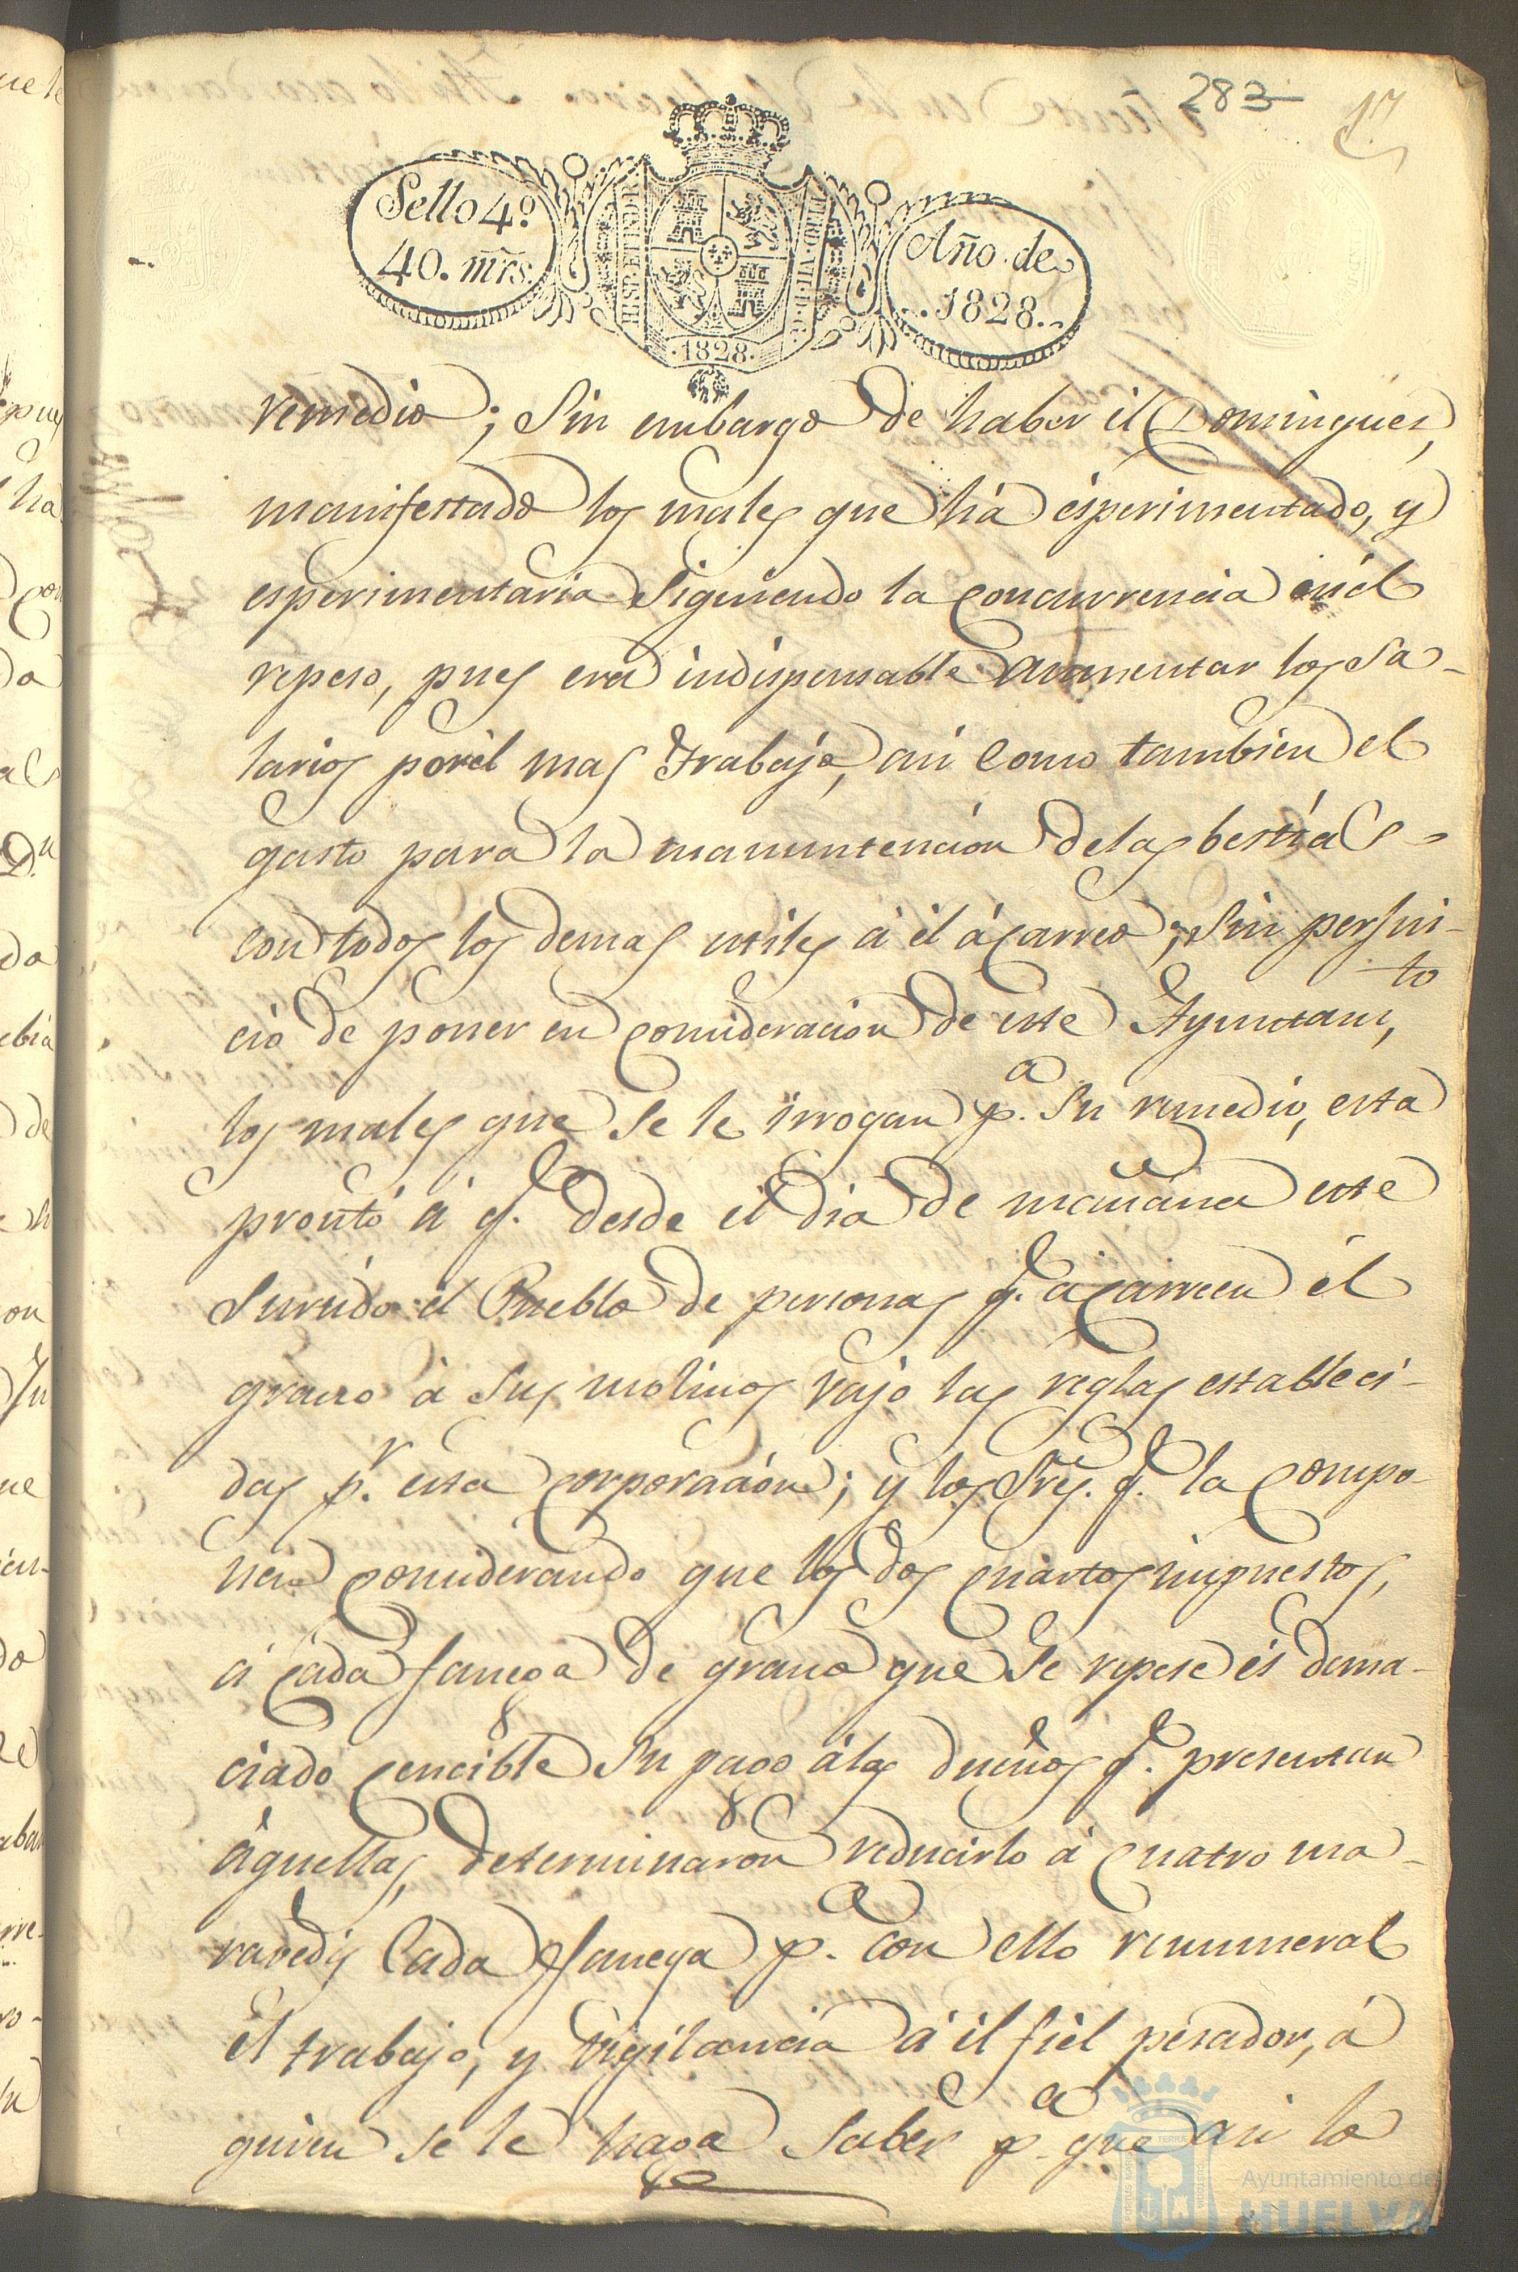 283
17
Sello 4º
40. mrs.
HISP. ET IND. R.
FERD. VII. D. G.
Año de
1828.
1828
remedio; Sin embargo de haber il Domingues,
manifestado los males que há ésperimentado, y
esperimentaria siguiendo la concurrencia en él
repeso, pues era indispensable aumentar los sa-
larios por él mas trabajo, asi como tambien el
gasto para la manuntencion de las bestias
con todos los demas utiles á él ácarreo; sin perjui-
cio de poner en consideracion de este Ayuntami,to
los males que se le irrogan p.a su remedio, esta
pronto á q.e desde el dia de mañana este
surtido el Pueblo de personas q.e acarreen él
grano á sus molinos vajo las reglas estableci-
das p.r esta corporacion; y los Sres. q.e la compo
nen considerando que los dos cuartos impuestos,
á cada fanega de grano que se repese és dema-
ciado cencible su pago á los dueños q.e presentan
áquellas, determinaron reducirlo á cuatro ma-
ravedis cada fanega p.a con ello renumeral
él trabajo, y vigilancia á il fiel pesador, á
quien se le haga saber p.a que asi lo
Ayuntamiento de
HUELVA